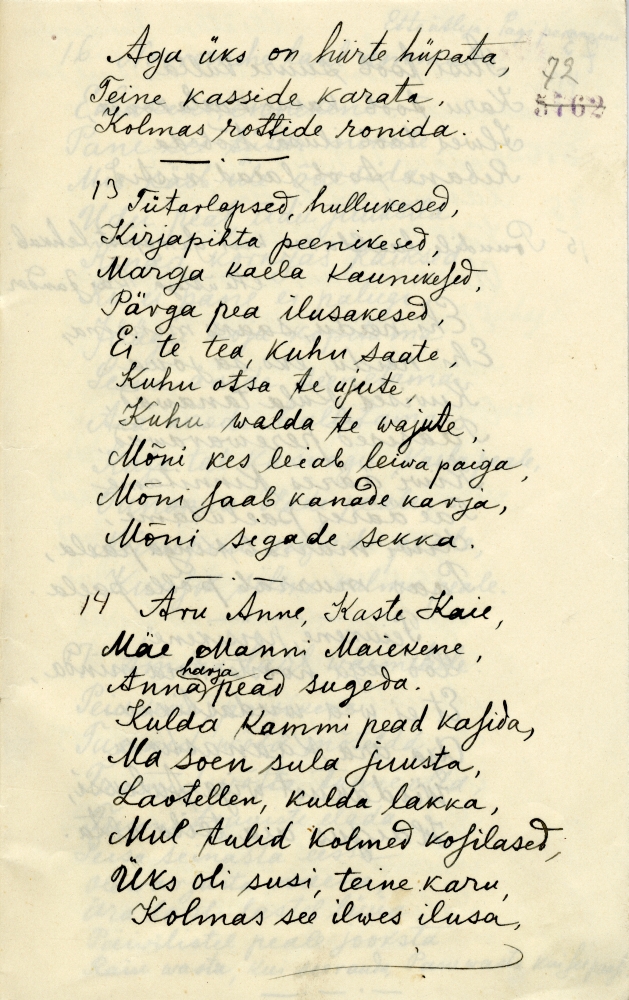 Aga üks on hiirte hüpata,
72
5762
Teine kasside karata,
Kolmas rottide ronida.
13 Tütarlapsed, hullukesed,
Kirjapihta peenikesed,
Marga kaela kaunikesed,
Pärga pea ilusakesed,
Ei te tea, kuhu saate,
Kuhu otsa te ujute,
Kuhu walda te wajute,
Mõni kes leiab leiwa paiga,
Mõni saab kanade karja,
Mõni sigade sekka.
14 Aru Anne, Kaste Kaie,
Mäe Manni Maiekene,
Anna harja pead sugeda.
Kulda kammi pead kasida,
Ma soen sula juusta,
Laotellen, kulda lakka,
Mul tulid kolmed kosilased,
Üks oli susi, teine karu,
Kolmas see ilwes ilusa,